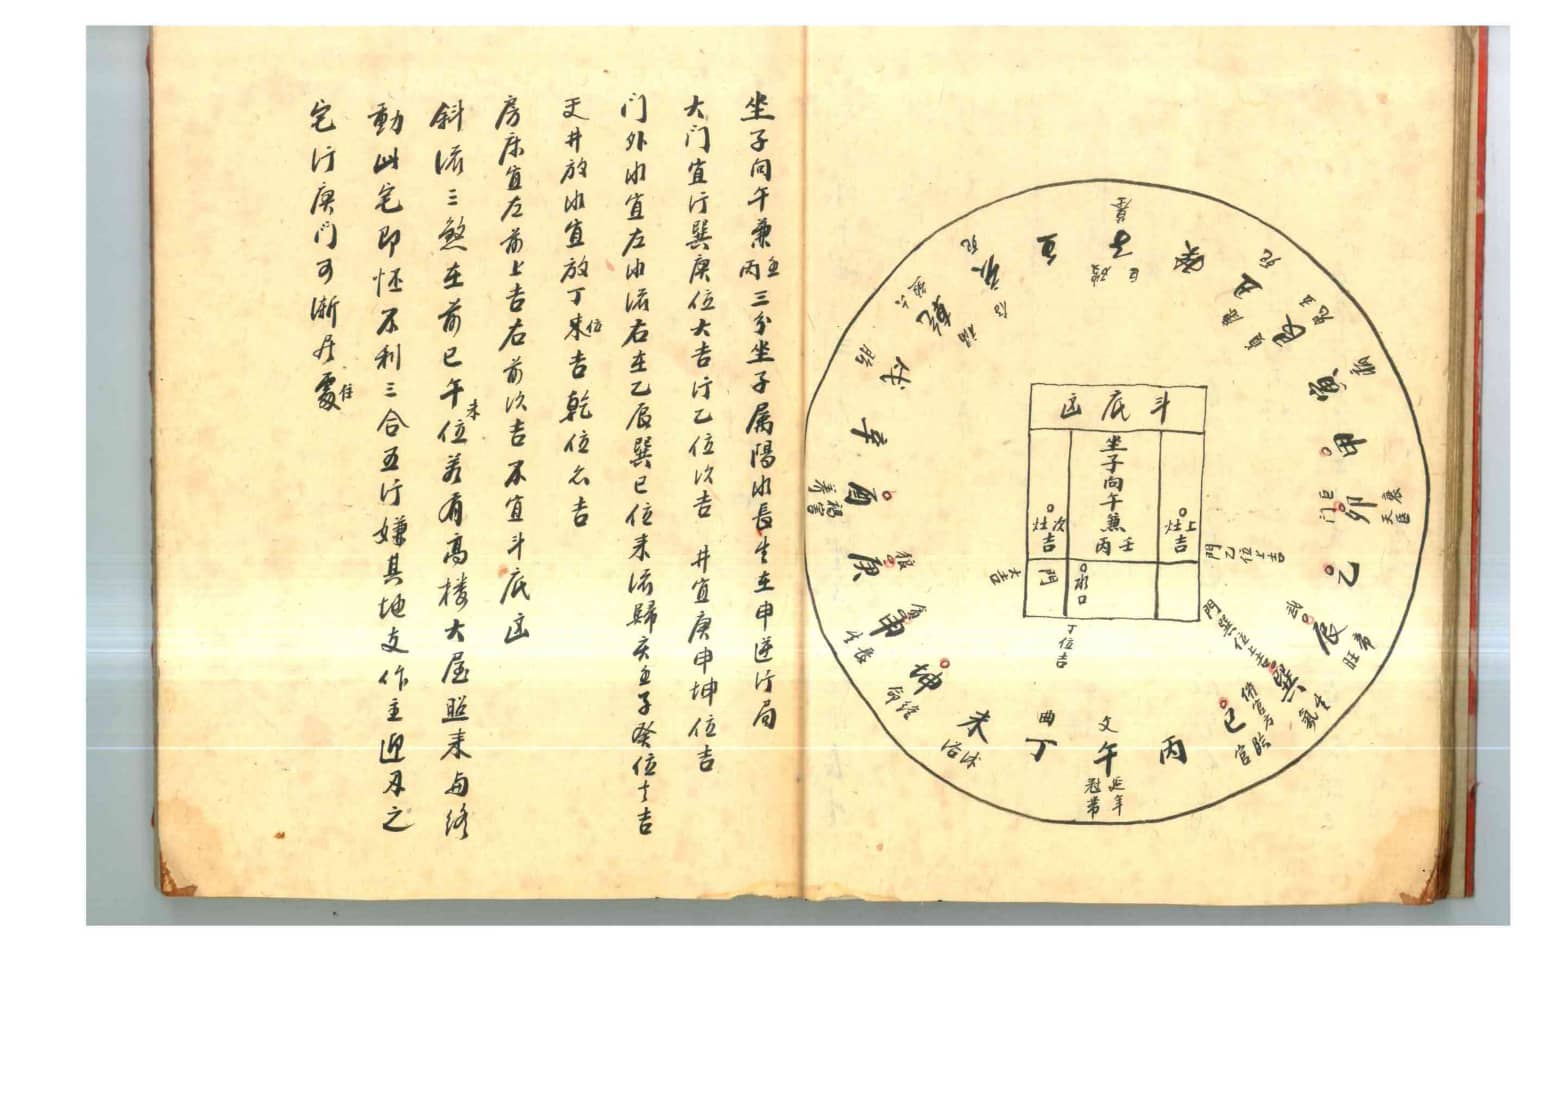 斗底凶
坐子向午兼壬丙
上吉灶
次吉灶
門
大吉
水口
丁位吉
乙位上吉
門
門巽位上吉
子
癸
丑
艮
寅
甲
卯
巨门
天医
乙
辰
武
帝旺
巽
生氣
巳
臨官
丙
午
文
延年
冠帶
丁
曲
未
沐浴
坤
絕命
申
長生
庚
狼
酉
養
禍害
辛
戌
胎
乾
六煞
亥
壬
坐子向午兼壬丙三分坐子属陽水長生在申逆行局
大门宜行巽庚位大吉行乙位次吉 井宜庚申坤位吉
门外水宜左水流右在乙辰巽巳位来流歸亥壬子癸位十吉
天井放水宜放丁未位吉乾位亦吉
房床宜左前上吉右前次吉不宜斗底凶
斜流三煞在前巳午未位若有高楼大屋照来与修
動此宅即怪不利三合五行嫌其地支作主迎刃之
宅行庚门可漸居住